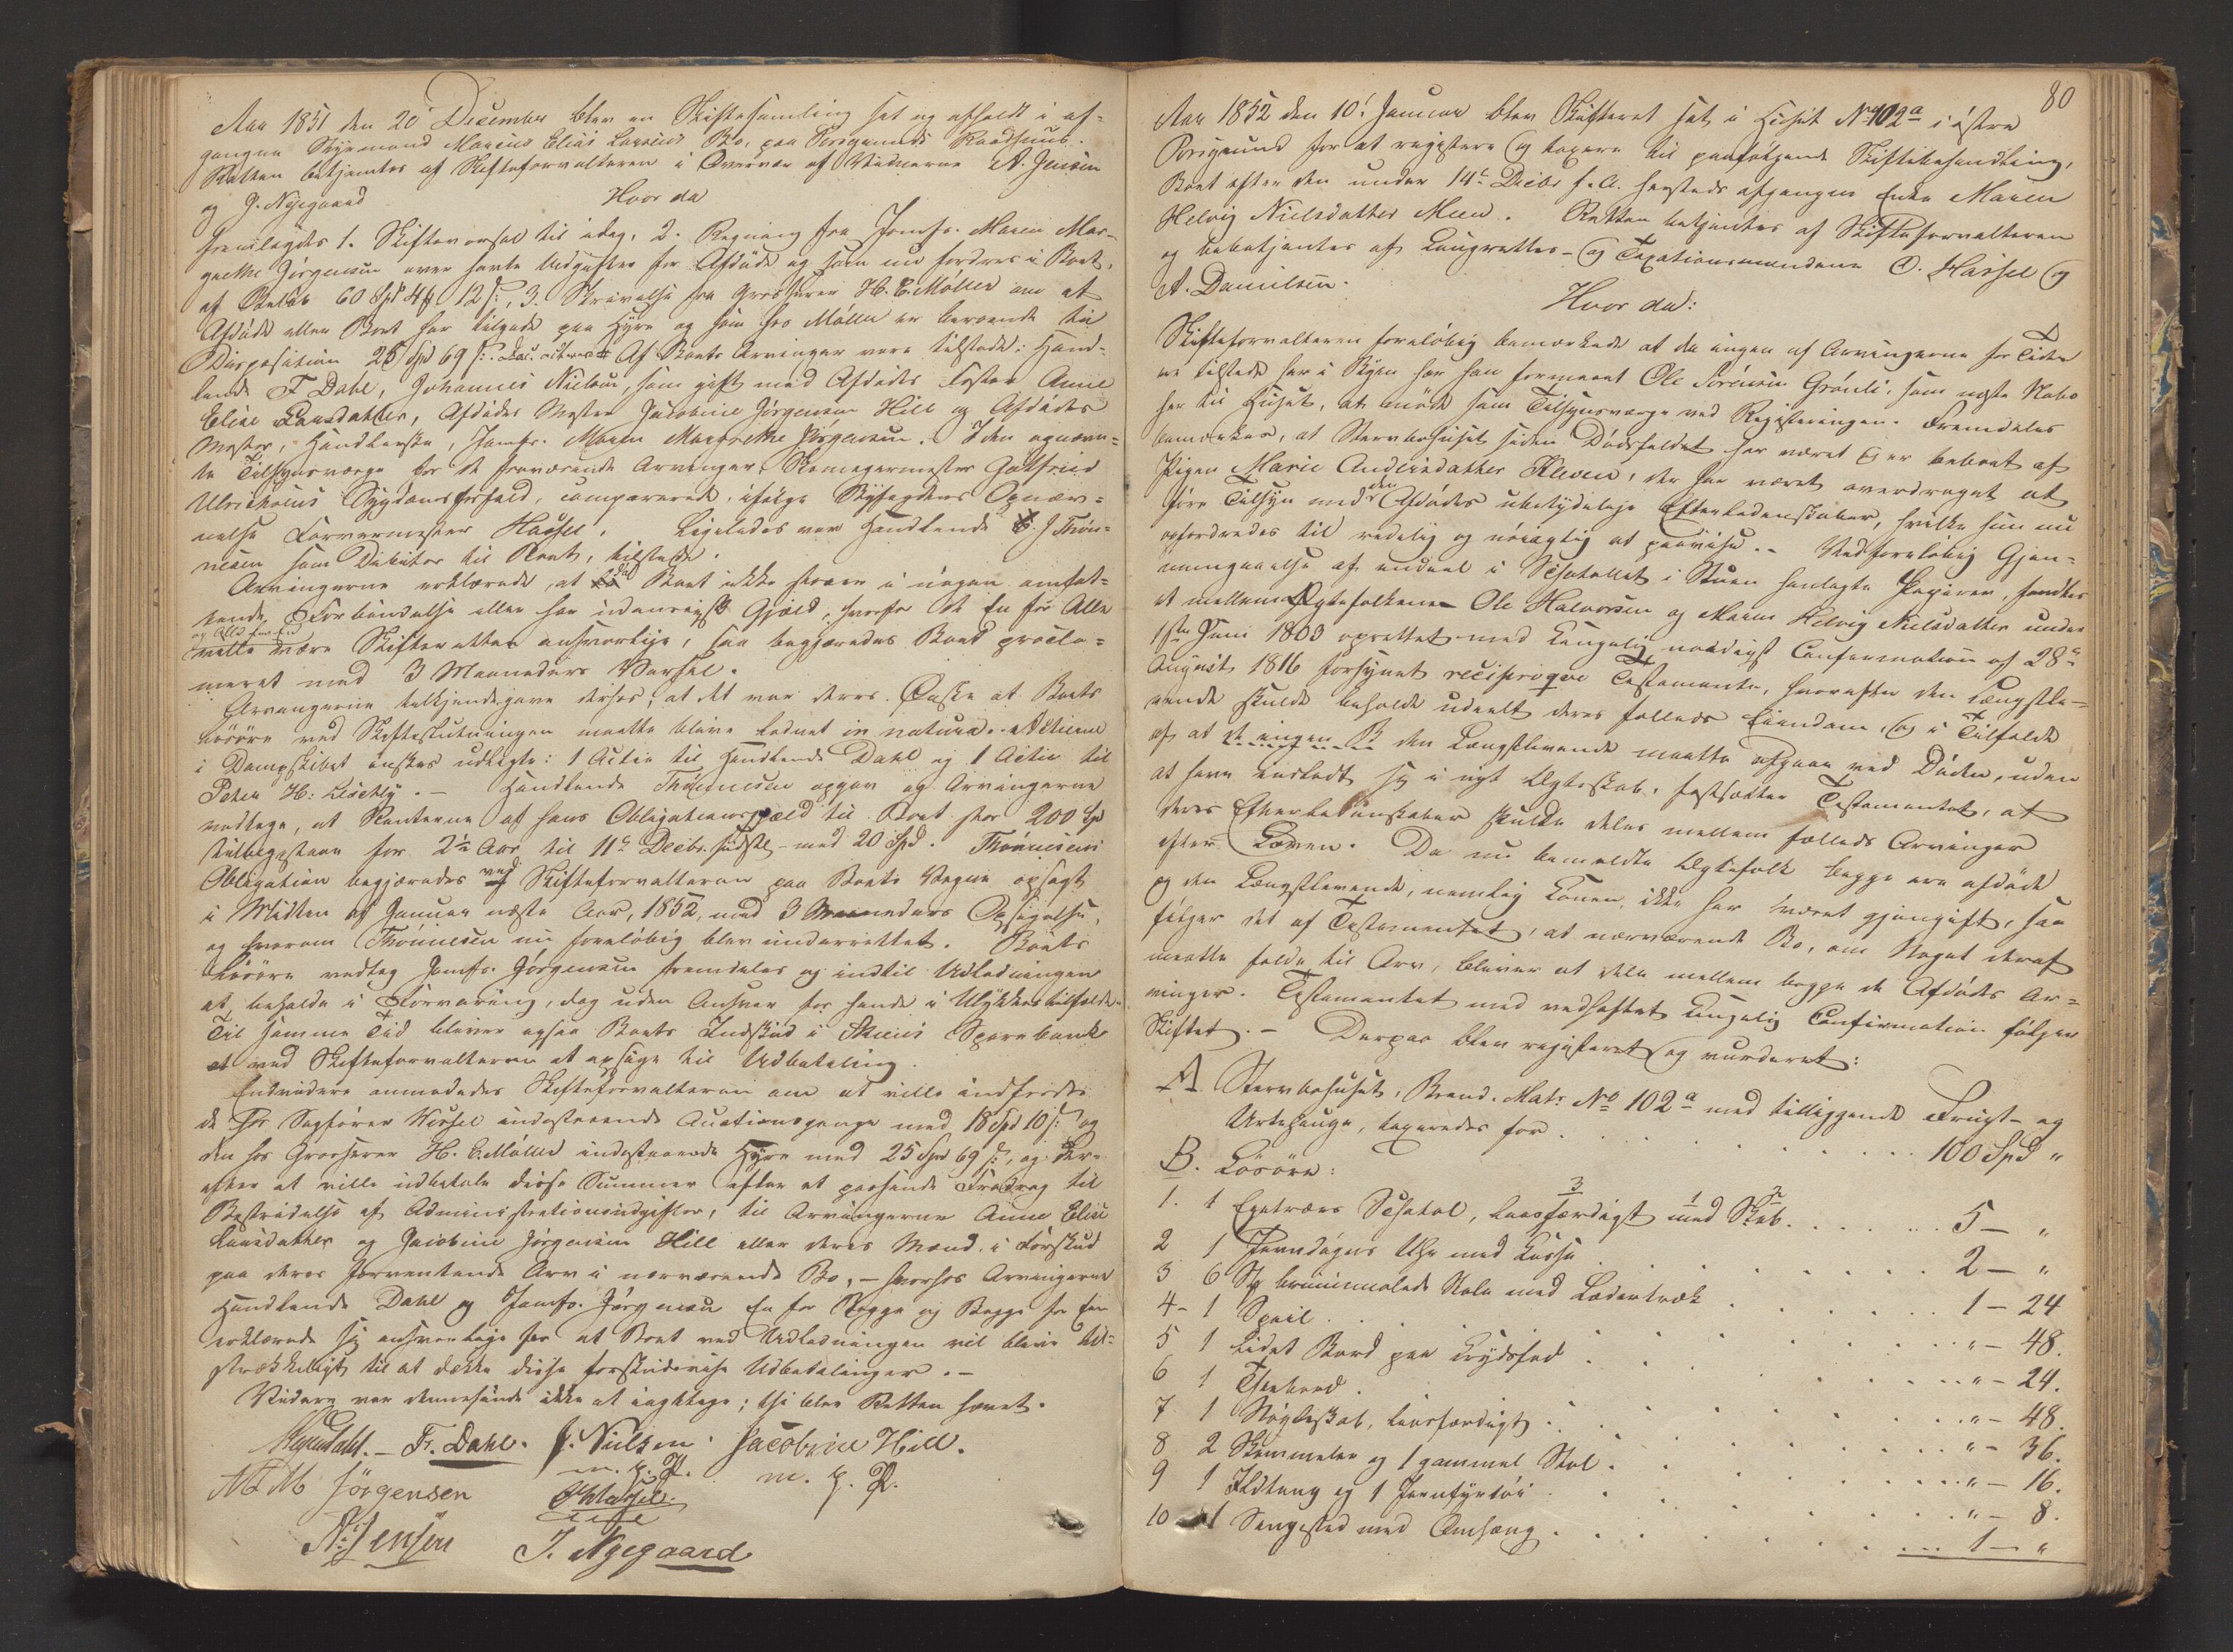 Aar 1851 den 20 December blev en Skiftesamling sat og afholdt i af-
gangne Skysmand Marius Elias Bo, paa Porsgrunds Raadhuus.
Retten betjentes af Skifteforvalteren i Overvær af Vidnerne A. Jensen
og J. Nyegaard
Hvor da
fremlagdes 1. Skiftevarsel til idag, 2. Regning fra Jomfr. Maren Mar-
grethe Jörgensen over havte Udgifter for Afdöde og som nu fordres i Boet,
af Beløb 60 Spd 4 12 s:, 3. Skrivelse fra Grosserer H. E. Möller om at
Afdöde eller Boet har tilgode paa Hyre og som hos Möller er beroende til
Disposition 25 Spd 69 s:. Af Boets Arvinger vare tilstede: Hand-
lende F. Dahl, Johannes Nielsen, som gift med Afdödes Söster Anne
Elise Larsdatter, Afdödes Moster Jacobine Jörgensen Hill og Afdödes
Moster, Handlerske, Jomfr. Maren Margrethe Jörgensen. I den opnævn-
te Tilsynsværge for de fraværende Arvinger, Skomagermester Gotfried
Ulrichsens Sygdomsforfald, comparerede ifölge Byfogdens Opnæv-
nelse Farvermester Hassel. Ligeledes var Handlende J. Thön-
nesen som Debitor til Boet, tilstede.
Arvingerne erklærede, at da Boet ikke havde i nogen omfat-
tende Forbindelse eller har udenrigsk Gjæld, hvorfor de En for Alle
og Alle for En
ville være Skifteretten ansvarlige, saa begjæredes Boet procla-
meret med 3 Maaneders Varsel.
Arvingerne tilkjendegave derhos, at det var deres Önske at Boets
Lösöre ved Skifteslutningen maatte blive lodnet in natura. Actierne
i Dampskibet önskes udlagte: 1 Actie til Handlende Dahl og 1 Actie til
Peter H: . — Handlende Thönnesen opgav og Arvingerne
vedtoge, at Renterne af hans Obligationsgjæld til Boet stor 200 Spd
tilbagestaar for 2½ Aar til 11te Decbr. sidstl. med 20 Spd. Thönnesens
Obligation begjæredes ved Skifteforvalteren paa Boets Vegne opsagt
i Midten af Januar næste Aar, 1852, med 3 Maaneders Opsigelse,
og hvorom Thönnesen nu foreløbig blev underrettet. Boets
Lösöre vedtog Jomfr. Jörgensen fremdeles og indtil Udlodningen
at beholde i Forvaring, dog uden Ansvar for hende i Ulykkestilfælde.
Til samme Tid bliver ogsaa Boets Indskud i Skiens Sparebank
at ved Skifteforvalteren at opsige til Udbetaling.
Endvidere anmodedes Skifteforvalteren om at ville indfordre
de hos Sagförer Wessel indestaaende Auctionspenge med 18 Spd 10 s: og
den hos Grosserer H. E. Möller indestaaende Hyre med 25 Spd 69 s:, og der-
efter at ville udbetale disse Summer efter et passende Fradrag til
Bestridelse af Administrationsudgifter, til Arvingerne Anne Elise
Larsdatter og Jacobine Jörgensen Hill eller deres Mænd i Forskud
paa deres forventende Arv i nærværende Bo, — hvorhos Arvingerne
Handlende Dahl og Jomfr. Jörgensen En for Begge og Begge for En
erklærede sig ansvarlige for at Boet ved Udlodningen vil blive til-
strækkeligt til at dække disse forskudsvise Udbetalinger. —
Videre var dennesinde ikke at iagttage; thi blev Retten hævet.
Fr. Dahl. J. Nielsen. Jacobine Hill.
m. p. P. m. p. P.
M M Jörgensen
A: Jensen J. Nyegaard
80
Aar 1852 den 10de Januar blev Skifteret sat i Huset No 102a i östre
Porsgrund for at registere og taxere til paafölgende Skiftebehandling,
Boet efter den under 14de Decbr f. A. hersteds afgangne Enke Maren
Helvig Nielsdatter Meen. Retten betjentes af Skifteforvalteren
og bebetjentes af Laugrettes- og Taxationsmændene O. Hassel og
A. Danielsen.
Hvor da:
Skifteforvalteren foreløbig bemærkede at da ingen af Arvingerne for Tiden
er tilstede her i Byen har han formaaet Ole Sörensen Grönli, som næste Nabo
her til Huset, at möde som Tilsynsværge ved Registeringen. Fremdeles
bemærkes, at Stervbohuset siden Dödsfaldet har været og er beboet af
Pigen Marie Andersdatter Kleven, der har været overdraget at
före Tilsyn med den Afdödes ubetydelige Efterladenskaber, hvilke hun nu
opfordredes til redelig og nöiagtig at paavise. Ved foreløbig Gjen-
nemgaaelse af endeel i Schatollet i Stuen henlagte Papirer, fandtes
et mellem Ægtefolkene Ole Halvorsen og Maren Helvig Nielsdatter under
1ste Juni 1803 oprettet med Kongelig naadigst Confirmation af 28de
August 1816 forsynet reciproqve Testamente, hvorefter den Længstle-
vende skulde beholde udeelt deres fælleds Eiendom, og i Tilfælde
af at den Længstlevende maatte afgaae ved Döden, uden
at have indladt sig i nyt Ægteskab, fastsætter Testamentet, at
deres Efterladenskaber skulde deles mellem fælleds Arvinger
efter Loven. Da nu bemeldte Ægtefolk begge ere afdöde
og den Længstlevende, nemlig Konen, ikke har været gjengift, saa
fölger det af Testamentet, at nærværende Bo, om Noget deraf
maatte falde til Arv, bliver at dele mellem begge de Afdödes Ar-
vinger. Testamentet med vedheftet Kongelig Confirmation fölger
Skiftet. — Derpaa blev registeret og vurderet:
A Stervbohuset, Brand. Matr. No 102a med tilliggende Frugt- og
Urtehauge, taxeredes for . . . 100 Spd "
B. Lösöre:
1. 1 Egetræes Schatol, laasfærdigt med Skab . . . 5 — "
2 1 Ühr med Kasse . . . 2 — "
3 6 St. bruunmalede Stole med Lædertræk . . . 1 — 24
4 - 1 Speil . . . " — 48.
5 1 Lidet Bord paa Krydsfod . . . " — 24.
6 1 Theebord . . . " — 48.
7 1 Nögleskab, laasfærdigt . . . " — 36.
8 2 Skammeler og 1 gammel Stol . . . " — 16.
9 1 Ildtang og 1 Jernfyrtöi . . . " — 8.
10 1 Sengested med Omhæng . . . 1 — "